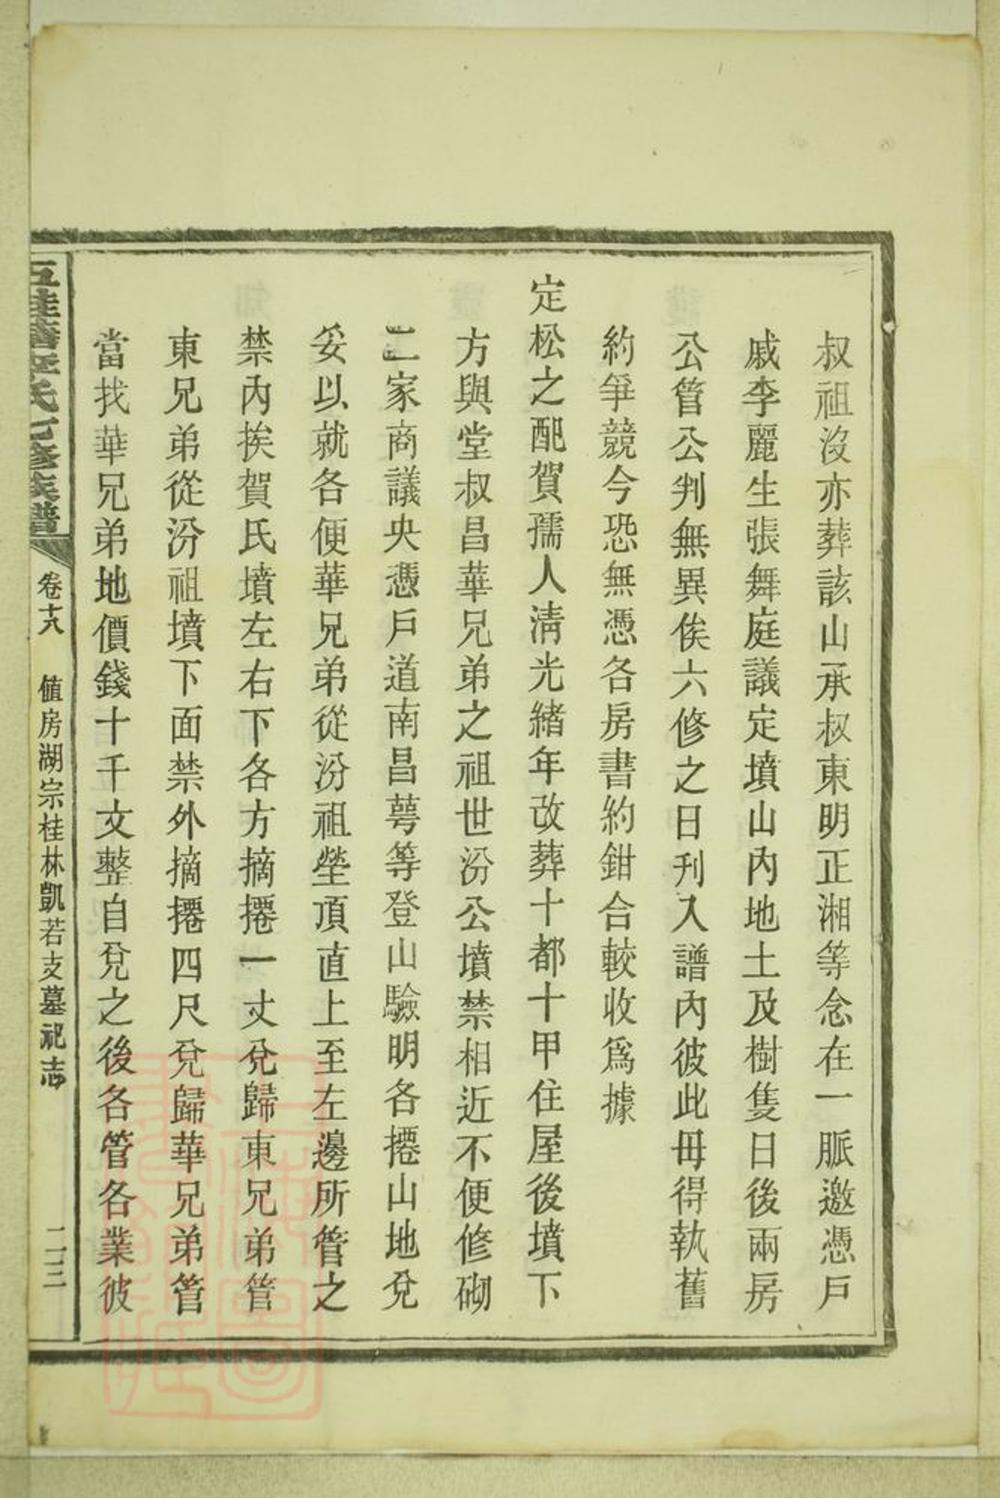 叔祖沒亦葬該山承叔東明正湘等念在一脈邀憑戶
戚李麗生張舞庭議定墳山內地土及樹隻日後兩房
公管公判無異俟六修之日刋入譜內彼此毋得執舊
約爭競今恐無憑各房書約鉗合較收爲據
定松之配賀孺人清光緒年改葬十都十甲住屋後墳下
方與堂叔昌華兄弟之祖世汾公墳禁相近不便修砌
二家商議央憑戶道南昌蕚等登山驗明各捲山地兌
妥以就各便華兄弟從汾祖塋頂直上至左邊所管之
禁內挨賀氏墳左右下各方摘捲一丈兌歸東兄弟管
東兄弟從汾祖墳下面禁外摘捲四尺兌歸華兄弟管
當找華兄弟地價錢十千文整自兌之後各管各業彼
氏七修族譜
卷十八
值房湖宗桂林凱若支墓祀志
二三